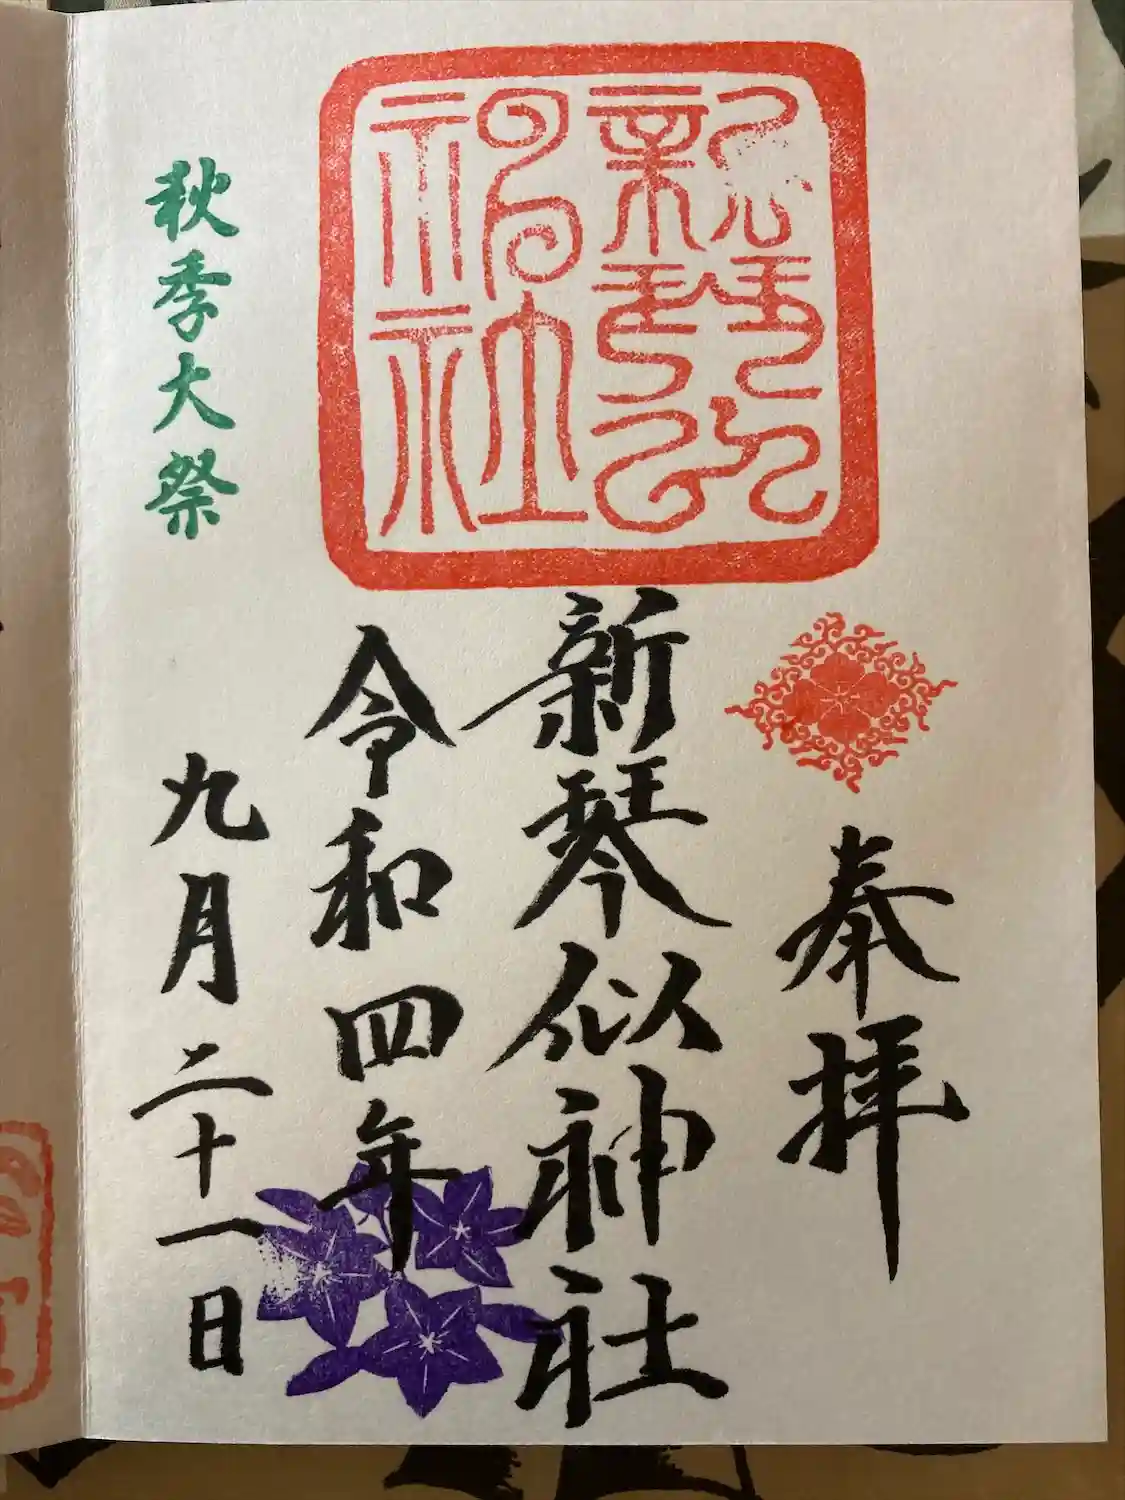 奉拝
新琴似神社
新琴似神社
令和四年
九月二十一日
秋季大祭